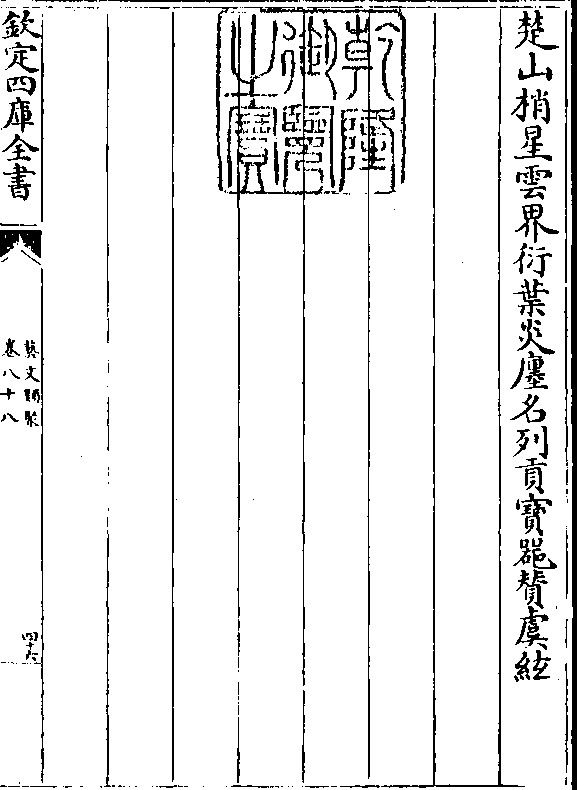 楚山梢星雲界衍葉炎廛名列貢寶器贊虞絃
乾隆
御覽
之寶
欽定四庫全書
藝文類聚
卷八十八
四十六